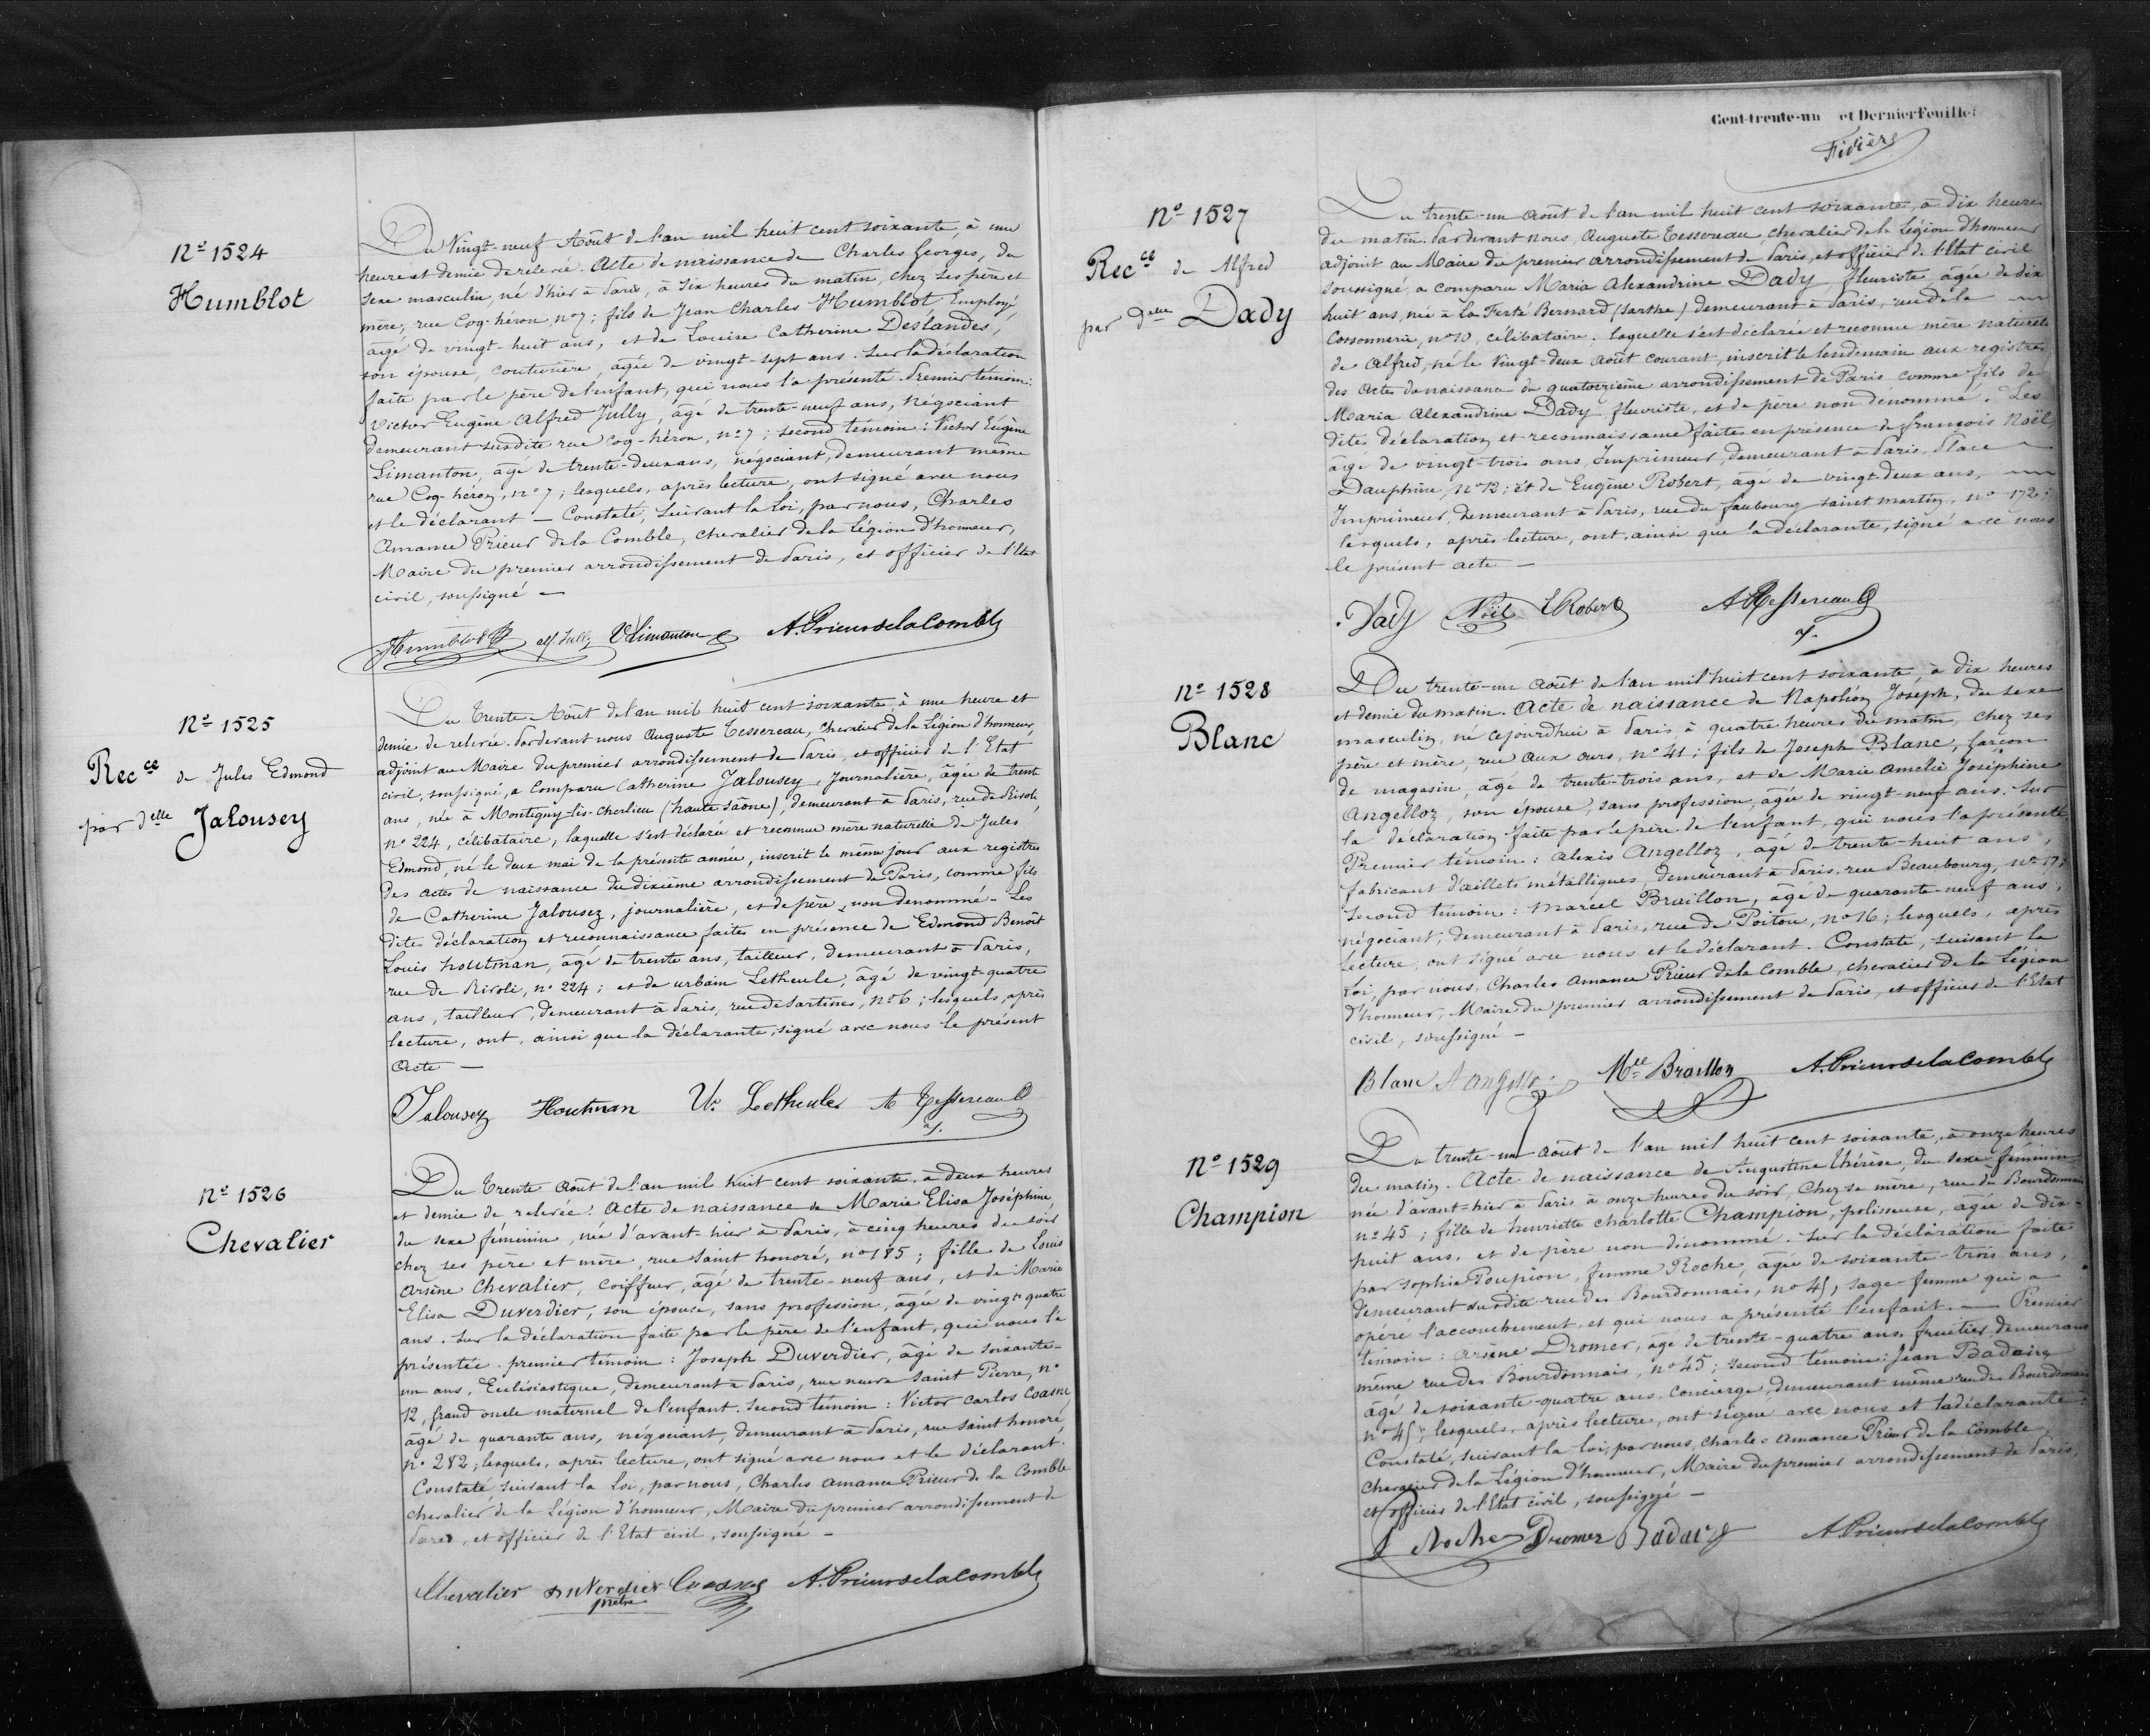 Nº 1524
Humblot
Du Vingt-neuf Août de l'an mil huit cent soixante, à une
heure et demie de relevée. Acte de naissance de Charles Georges, du
sexe masculin, né d'hier à Paris, à six heures du matin, chez ses père et
mère, rue Coq-héron, nº 7; fils de Jean Charles Humblot, Employé,
âgé de vingt-huit ans, et de Louise Catherine Deslandes,
son épouse, couturière, âgée de vingt-sept ans. Sur la déclaration
faite par le père de l'enfant, qui nous l'a présenté. Premier témoin:
Victor Eugène Alfred Jully, âgé de trente-neuf ans, Négociant
demeurant susdite rue Coq-héron, nº 7; second témoin: Victor Eugène
Limanton, âgé de trente-deux ans, négociant, demeurant même
rue Coq-héron, nº 7; lesquels, après lecture, ont signé avec nous
et le déclarant — Constaté, suivant la Loi, par nous, Charles
Amance Prieur de la Comble, chevalier de la Légion d'honneur,
Maire du premier arrondissement de Paris, et officier de l'Etat
civil, soussigné —
Humblot alf. Jully V Limanton A. Prieur de la Comble
Nº 1525
Rec ce de Jules Edmond
par delle Jalousey
Du Trente Août de l'an mil huit cent soixante, à une heure et
demie de relevée. Pardevant nous Auguste Tessereau, Chevalier de la Légion d'honneur,
adjoint au Maire du premier arrondissement de Paris, et officier de l'Etat
civil, soussigné, a Comparu Catherine Jalousey, Journalière, âgée de trente
ans, née à Montigny-lès-Cherlieu (haute Saône), demeurant à Paris, rue de Rivoli,
nº 224, célibataire; laquelle s'est déclarée et reconnue mère naturelle de Jules
Edmond, né le deux mai de la présente année, inscrit le même jour aux registres
des actes de naissance du dixième arrondissement de Paris, comme fils
de Catherine Jalousez, journalière, et de père non dénommé — Les
dites déclaration et reconnaissance faites en présence de Edmond Benoît
Louis Houtman, âgé de trente ans, tailleur, demeurant à Paris,
rue de Rivoli, nº 224; et de urbain Letheule, âgé de vingt-quatre
ans, tailleur, demeurant à Paris, rue de Sartines, nº 6; lesquels, après
lecture, ont, ainsi que la déclarante, signé avec nous le présent
Acte —
Jalousey Houtman Un Letheule A Tessereau
aj.
Nº 1526
Chevalier
Du Trente Août de l'an mil huit cent soixante, à deux heures
et demie de relevée. Acte de naissance de Marie Elisa Joséphine,
du sexe féminin, née d'avant-hier à Paris, à cinq heures du soir
chez ses père et mère, rue Saint honoré, nº 185; fille de Louis
Arsène Chevalier, Coiffeur, âgé de trente-neuf ans, et de Marie
Elisa Duverdier, son épouse, sans profession, âgée de vingt-quatre
ans. Sur la déclaration faite par le père de l'enfant, qui nous l'a
présentée. premier témoin: Joseph Duverdier, âgé de soixante-
un ans, Ecclésiastique, demeurant à Paris, rue neuve Saint Pierre, nº
12, grand oncle maternel de l'enfant. Second témoin: Victor Carlos Coasne,
âgé de quarante ans, négociant, demeurant à Paris, rue Saint honoré,
nº 282; lesquels, après lecture, ont signé avec nous et le déclarant.
Constaté, suivant la Loi, par nous, Charles Amance Prieur de la Comble
chevalier de la Légion d'honneur, Maire du premier arrondissement de
Paris, et officier de l'Etat civil, soussigné —
Chevalier Duverdier Coasne A. Prieur de la Comble
prêtre
Cent-trente-un et Dernier Feuillet
Nº 1527
Rec ce de Alfred
par delle Dady
Du trente-un Août de l'an mil huit cent soixante, à dix heures
du matin. Pardevant nous, Auguste Tessereau, chevalier de la Légion d'honneur
adjoint au Maire du premier arrondissement de Paris, et officier de l'Etat civil
soussigné, a comparu Maria Alexandrine Dady, fleuriste, âgée de dix
huit ans, née à la Ferté Bernard (Sarthe) demeurant à Paris, rue de la
Cossonnerie, nº 10, célibataire. laquelle s'est déclarée et reconnue mère naturelle
de Alfred, né le vingt-deux Août courant, inscrit le lendemain aux registres
des Actes de naissance du quatorzième arrondissement de Paris comme fils de
Maria Alexandrine Dady, fleuriste, et de père non dénommé. Les
dites déclaration et reconnaissance faites en présence de François Noël
âgé de vingt-trois ans, Imprimeur, demeurant à Paris, Place
Dauphine, nº 12; et de Eugène Robert, âgé de vingt-deux ans,
Imprimeur, demeurant à Paris, rue du faubourg saint martin, nº 172;
lesquels, après lecture, ont, ainsi que la déclarante, signé avec nous
le présent acte —
Dady Noël E Robert A Tessereau
aj.
Nº 1528
Blanc
Du trente-un Août de l'an mil huit cent soixante, à dix heures
et demie du matin. Acte de naissance de Napoléon Joseph, du sexe
masculin, né cejourd'hui à Paris à quatre heures du matin, chez ses
père et mère, rue aux ours, nº 41; fils de Joseph Blanc, garçon
de magasin, âgé de trente-trois ans, et de Marie Amélie Joséphine
Angelloz, son épouse, sans profession, âgée de vingt-neuf ans. Sur
la déclaration faite par le père de l'enfant, qui nous l'a présenté
Premier témoin: Alexis Angelloz, âgé de trente-huit ans,
fabricant d'aillets métalliques, demeurant à Paris, rue Beaubourg, nº 17;
Second témoin: Marcel Braillon, âgé de quarante-neuf ans,
négociant, demeurant à Paris, rue de Poitou, nº 16; lesquels, après
lecture, ont signé avec nous et le déclarant. Constaté, suivant la
Loi, par nous, Charles Amance Prieur de la Comble, chevalier de la Légion
d'honneur, Maire du premier arrondissement de Paris, et officier de l'Etat
civil, soussigné —
Blanc A Angelloz Mcel Braillon A. Prieur de la Comble
Nº 1529
Champion
Du trente-un Août de l'an mil huit cent soixante, à onze heures
du matin. Acte de naissance de Augustine Thérèse, du sexe féminin
née d'avant-hier à Paris à onze heures du soir, Chez sa mère, rue des Bourdonnais
nº 45; fille de henriette charlotte Champion, polisseuse, âgée de dix-
huit ans, et de père non dénommé. Sur la déclaration faite
par Sophie Poupion, femme Roche, âgée de soixante-trois ans,
demeurant susdite rue des Bourdonnais, nº 45, sage-femme qui a
opéré l'accouchement et qui nous a présenté l'enfant. — Premier
témoin: Arsène Dromer, âgé de trente-quatre ans, fruitier, demeurant
même rue des Bourdonnais, nº 45; second témoin: Jean Badaire
âgé de soixante-quatre ans, Concierge, demeurant même rue des Bourdonnais
nº 45; lesquels, après lecture, ont signé avec nous et la déclarante.
Constaté, suivant la loi, par nous, Charles Amance Prieur de la Comble
Chevalier de la Légion d'honneur, Maire du premier arrondissement de Paris,
et officier de l'Etat civil, soussigné —
Roche Dromer A. Prieur de la Comble